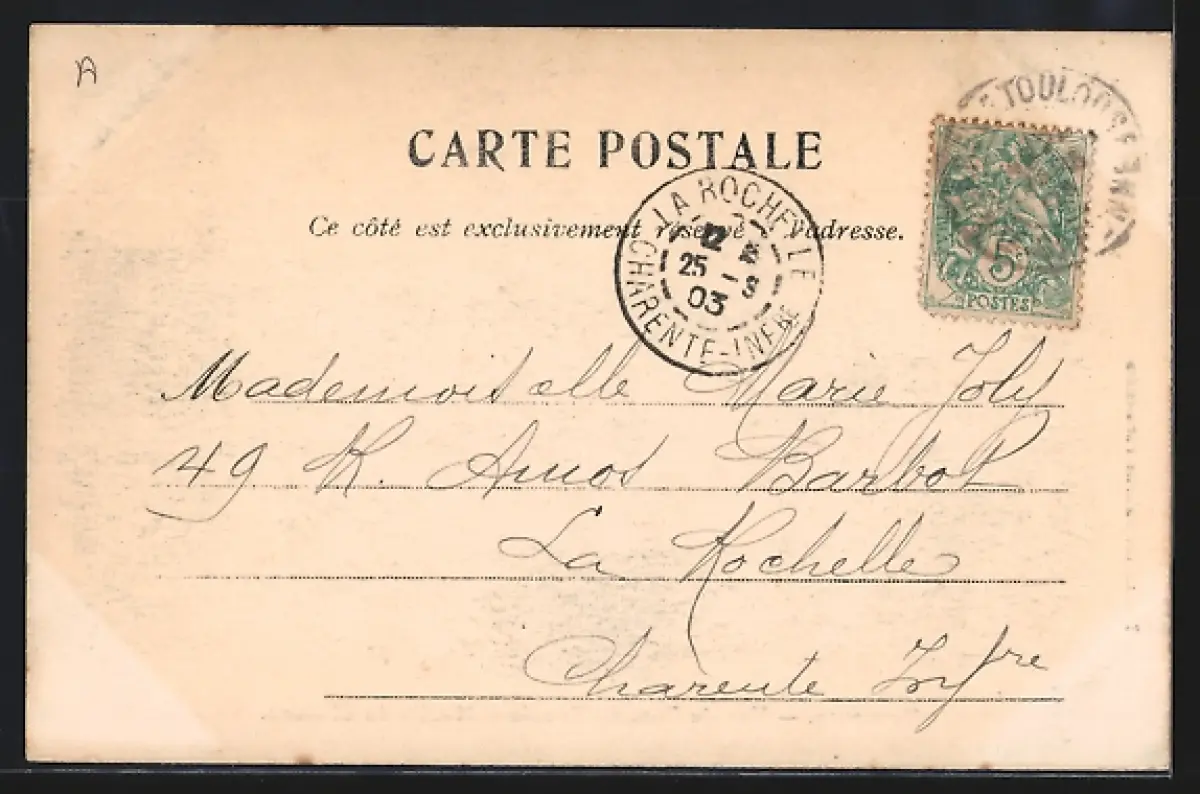 A
TOULOUSE
CARTE POSTALE
Ce côté est exclusivement réservé à l'adresse.
LA ROCHELLE
12
25 - 3
03
CHARENTE-INFRE
5
POSTES
Mademoiselle Marie Joly
49 R. Amos Barbot
La Rochelle
Charente Infre